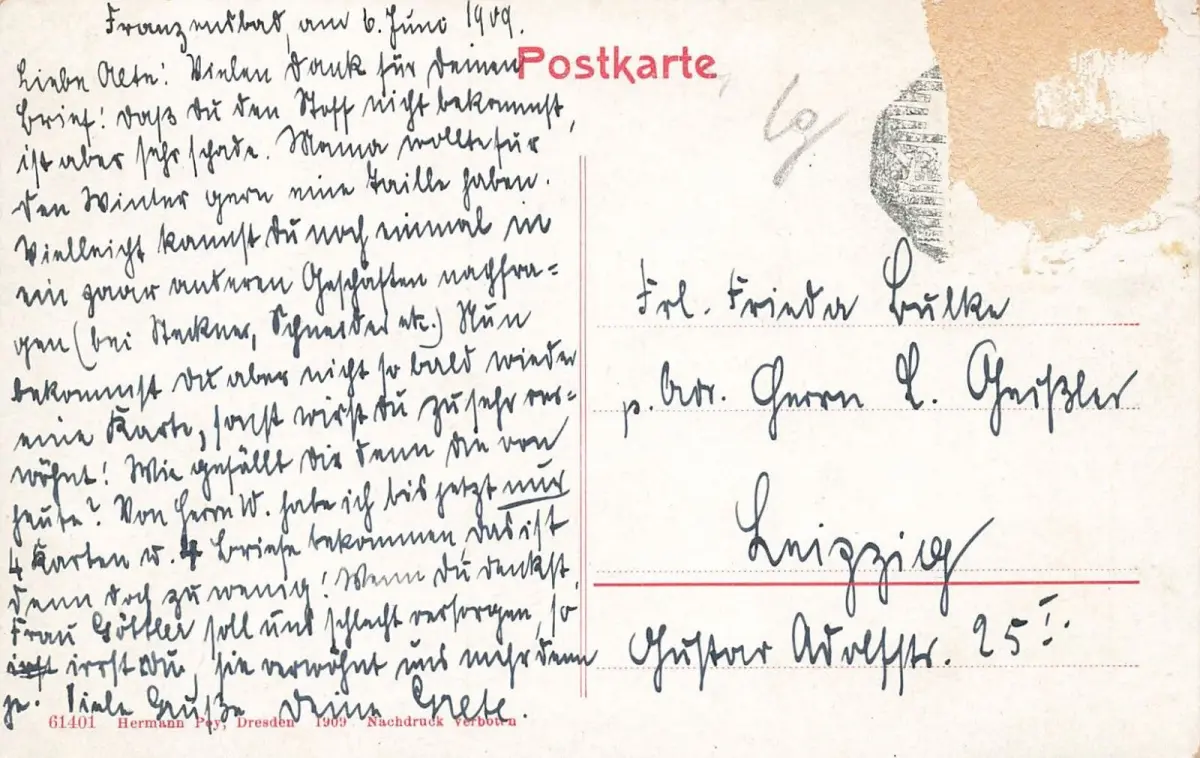 Franzensbad, am 6. Juni 1909.
Liebe Alte! Vielen Dank für Deinen
Brief! Daß Du den Stoff nicht bekommst,
ist aber sehr schade. Mama wollte für
den Winter gern eine Taille haben.
Vielleicht kannst Du noch einmal in
ein paar anderen Geschäften nachfra=
gen (bei Steckner, Schneider etc.) Nun
bekommst Du aber nicht so bald wieder
eine Karte, sonst wirst Du zu sehr ver=
wöhnt! Wie gefällt Dir denn die von
heute? Von Herrn W. habe ich bis jetzt nur
4 Karten u. 4 Briefe bekommen, das ist
denn doch zu wenig! Wenn Du denkst,
Frau Göttler soll uns schlecht versorgen, so
irrst Du, sie verwöhnt uns mehr denn
je. Viele Grüße Deine Grete.
Postkarte
Frl. Frieda Bulke
p. Adr. Herrn L. Geißler
Leipzig
Gustav Adolfstr. 25 I.
61401 Hermann Poy, Dresden 1909 Nachdruck verboten